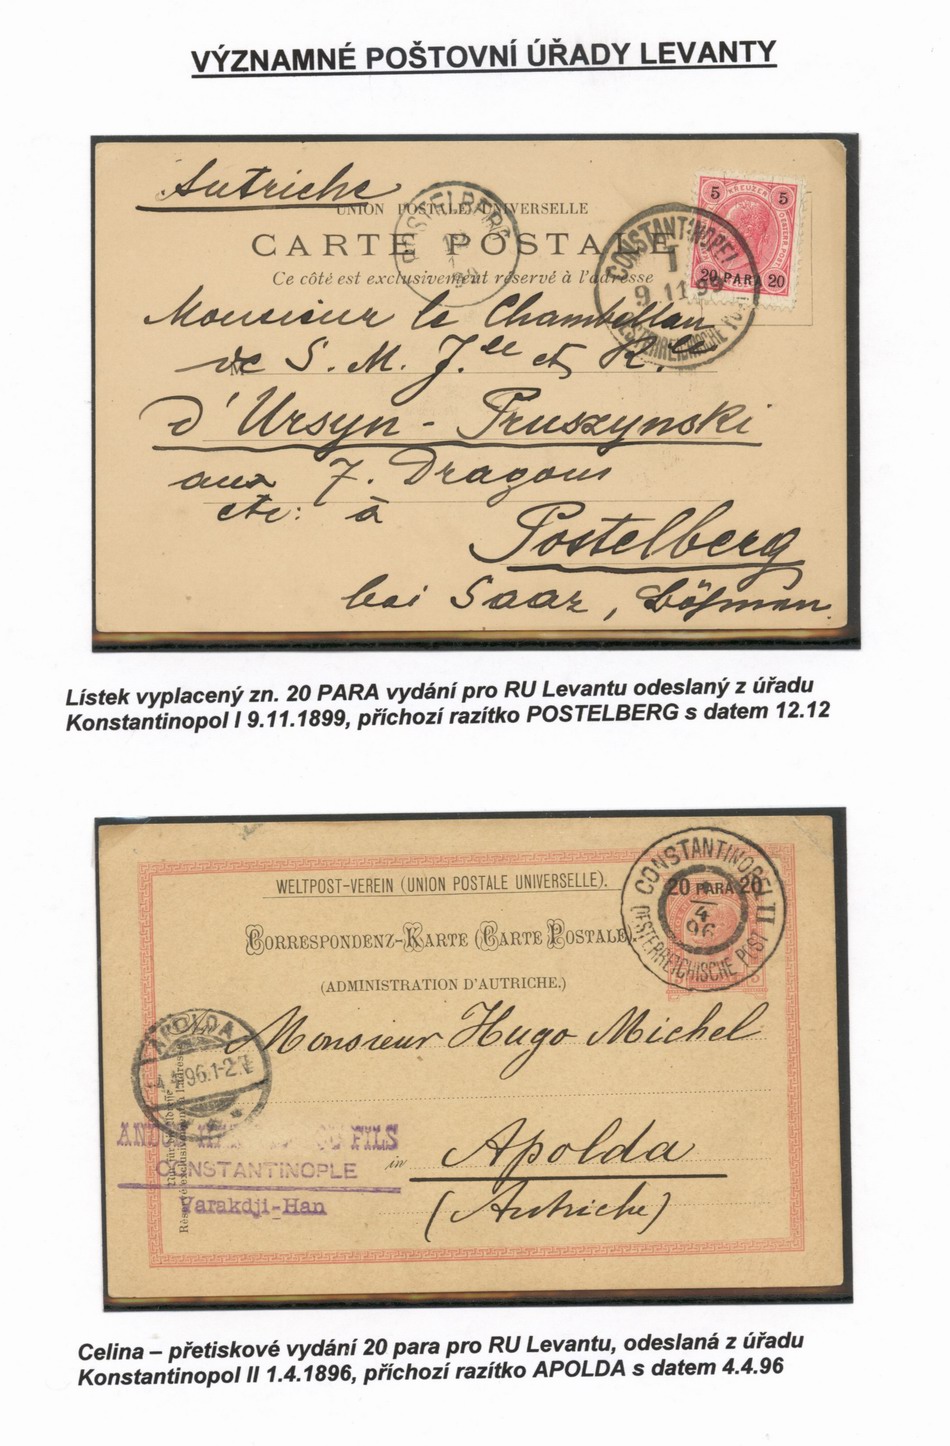 VÝZNAMNÉ POŠTOVNÍ ÚŘADY LEVANTY
Autriche
UNION POSTALE UNIVERSELLE
CARTE POSTALE
Ce côté est exclusivement réservé à l'adresse
POSTELBERG
5 KREUZER 5
20 PARA 20
CONSTANTINOPEL
I
9 11 99
OESTERREICHISCHE POST
Monsieur le Chambellan
de S. M. J.le et R.le
d'Ursyn - Pruszynski
aux 7. Dragons
etc: à
Postelberg
bei Saaz, Böhmen.
Lístek vyplacený zn. 20 PARA vydání pro RU Levantu odeslaný z úřadu
Konstantinopol I 9.11.1899, příchozí razítko POSTELBERG s datem 12.12
WELTPOST-VEREIN (UNION POSTALE UNIVERSELLE).
CORRESPONDENZ-KARTE (CARTE POSTALE).
(ADMINISTRATION D'AUTRICHE.)
20 PARA 20
CONSTANTINOPEL II
4
96
OESTERREICHISCHE POST
APOLDA
96.1-2
Monsieur Hugo Michel
FILS
CONSTANTINOPLE
Varakdji-Han
in Apolda
(Autriche)
Celina – přetiskové vydání 20 para pro RU Levantu, odeslaná z úřadu
Konstantinopol II 1.4.1896, příchozí razítko APOLDA s datem 4.4.96